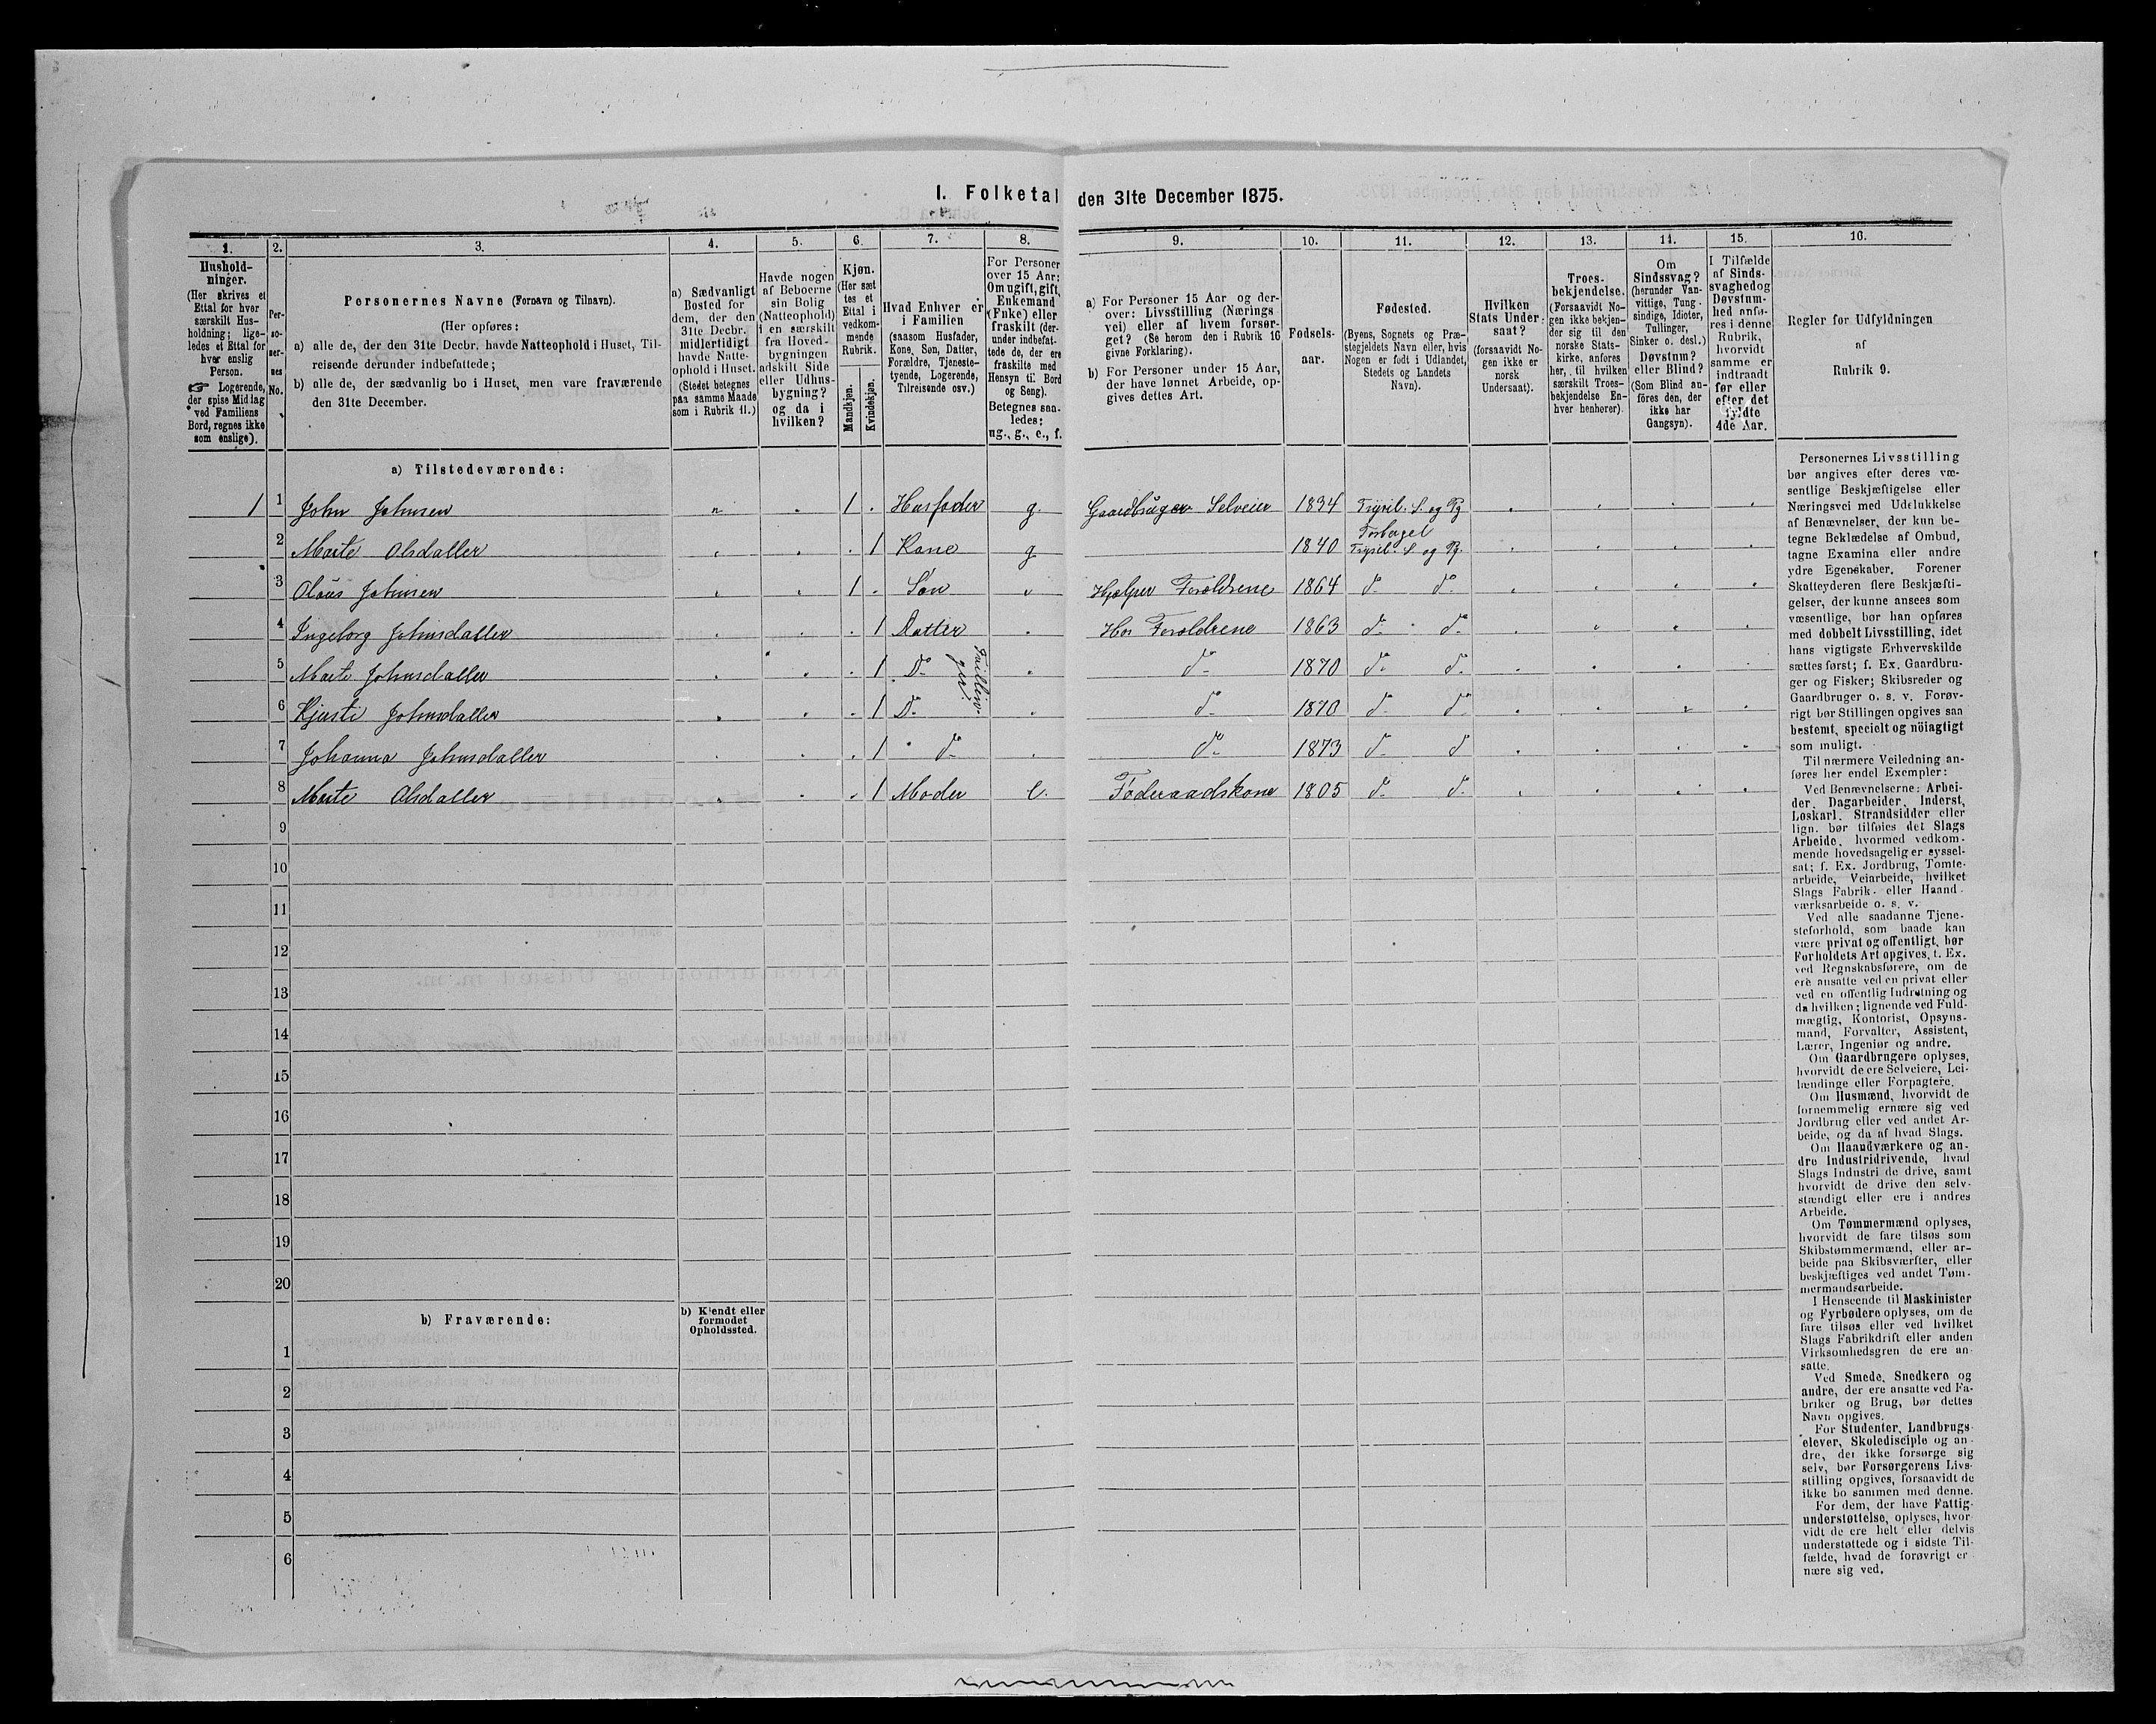 I. Folketal den 31te December 1875.
1. 2. 3. 4. 5. 6. 7. 8. 9. 10. 11. 12. 13. 14. 15. 16.
Hushold-
ninger.
(Her skrives et
Ettal for hver
særskilt Hus-
holdning; lige-
ledes et Ettal for
hver enslig
Person.
☞ Logerende,
der spise Middag
ved Familiens
Bord, regnes ikke
som enslige).
Per-
so-
ner-
nes
No.
Personernes Navne (Fornavn og Tilnavn).
(Her opføres:
a) alle de, der den 31te Decbr. havde Natteophold i Huset, Til-
reisende derunder indbefattede;
b) alle de, der sædvanlig bo i Huset, men vare fraværende
den 31te December.
a) Sædvanligt
Bosted for
dem, der den
31te Decbr.
midlertidigt
havde Natte-
ophold i Huset.
(Stedet betegnes
paa samme Maade
som i Rubrik 11.)
Havde nogen
af Beboerne
sin Bolig
(Natteophold)
i en særskilt
fra Hoved-
bygningen
adskilt Side
eller Udhus-
bygning?
og da i
hvilken?
Kjøn.
(Her sæt
tes et
Ettal i
vedkom-
mende
Rubrik.
Mandkjøn.
Kvindekjøn.
Hvad Enhver er
i Familien
(saasom Husfader,
Kone, Søn, Datter,
Forældre, Tjeneste-
tyende, Logerende,
Tilreisende osv.)
For Personer
over 15 Aar:
Om ugift, gift,
Enkemand
(Enke) eller
fraskilt (der-
under indbefat-
tede de, der ere
fraskilte med
Hensyn til Bord
og Seng).
Betegnes saa-
ledes:
ug., g., e., f.
a) For Personer 15 Aar og der-
over: Livsstilling (Nærings
vei) eller af hvem forsør-
get? (Se herom den i Rubrik 16
givne Forklaring).
b) For Personer under 15 Aar,
der have lønnet Arbeide, op-
gives dettes Art.
Fødsels-
aar.
Fødested.
(Byens, Sognets og Præ-
stegjeldets Navn eller, hvis
Nogen er født i Udlandet,
Stedets og Landets
Navn).
Hvilken
Stats Under-
saat?
(forsaavidt No-
gen ikke er
norsk
Undersaat).
Troes-
bekjendelse.
(Forsaavidt No-
gen ikke bekjen-
der sig til den
norske Stats-
kirke, anføres
her, til hvilken
særskilt Troes-
bekjendelse En-
hver henhører).
Om
Sindssvag?
(herunder Van-
vittige, Tung-
sindige, Idioter,
Tullinger,
Sinker o. desl.)
Døvstum?
eller Blind?
(Som Blind an-
føres den, der
ikke har
Gangsyn).
I Tilfælde
af Sinds-
svaghed og
Døvstum-
hed anfø-
res i denne
Rubrik,
hvorvidt
samme er
indtraadt
før eller
efter det
fyldte
4de Aar.
Regler for Udfyldningen
af
Rubrik 9.
a) Tilstedeværende:
1 1 John Johnsen 1 Husfader g. Gaardbruger Selveier 1834 Trysil. S. og Pg
2 Marte Olsdatter 1 Kone g 1840 Trysil. S. og Pg.
3 Olaus Johnsen 1 Søn Hjælper Forældrene 1864 do do
4 Ingeborg Johnsdatter 1 Datter Hos Forældrene 1863 do do
5 Marte Johnsdatter 1 Do do 1870 do do
6 Kjersti Johnsdatter 1 Do do 1870 do do
7 Johanna Johnsdatter 1 do do 1873 do do
8 Marte Olsdatter 1 Moder e. Føderaadskone 1805 do do
9
10
11
12
13
14
15
16
17
18
19
20
b) Fraværende:
b) Kjendt eller
formodet
Opholdssted.
1
2
3
4
5
6
Personernes Livsstilling
bør angives efter deres væ-
sentlige Beskjæftigelse eller
Næringsvei med Udelukkelse
af Benævnelser, der kun be-
tegne Beklædelse af Ombud,
tagne Examina eller andre
ydre Egenskaber. Forener
Skatteyderen flere Beskjæfti-
gelser, der kunne ansees som
væsentlige, bør han opføres
med dobbelt Livsstilling, idet
hans vigtigste Erhvervskilde
sættes først; f. Ex. Gaardbru-
ger og Fisker; Skibsreder og
Gaardbruger o. s. v. Forøv-
rigt bør Stillingen opgives saa
bestemt, specielt og nöiagtigt
som muligt.
Til nærmere Veiledning an-
føres her endel Exempler:
Ved Benævnelserne: Arbei-
der, Dagarbeider, Inderst,
Løskarl, Strandsidder eller
lign. bør tilføies det Slags
Arbeide, hvormed vedkom-
mende hovedsagelig er syssel-
sat; f. Ex. Jordbrug, Tomte-
arbeide, Veiarbeide, hvilket
Slags Fabrik- eller Haand-
værksarbeide o. s. v.
Ved alle saadanne Tjene-
steforhold, som baade kan
være privat og offentligt, bør
Forholdets Art opgives, f. Ex.
ved Regnskabsførere, om de
ere ansatte ved en privat eller
ved en offentlig Indretning og
da hvilken; lignende ved Fuld-
mægtig, Kontorist, Opsyns-
mand, Forvalter, Assistent,
Lærer, Ingeniør og andre.
Om Gaardbrugere oplyses,
hvorvidt de ere Selveiere, Lei-
lændinge eller Forpagtere.
Om Husmænd, hvorvidt de
fornemmelig ernære sig ved
Jordbrug eller ved andet Ar-
beide, og da af hvad Slags.
Om Haandværkere og an-
dre Industridrivende, hvad
Slags Industri de drive, samt
hvorvidt de drive den selv-
stændigt eller ere i andres
Arbeide.
Om Tømmermænd oplyses,
hvorvidt de fare tilsøs som
Skibstømmermænd, eller ar-
beide paa Skibsværfter, eller
beskjæftiges ved andet Tøm-
mermandsarbeide.
I Henseende til Maskinister
og Fyrbødere oplyses, om de
fare tilsøs eller ved hvilket
Slags Fabrikdrift eller anden
Virksomhedsgren de ere an-
satte.
Ved Smede, Snedkere og
andre, der ere ansatte ved Fa-
briker og Brug, bør dettes
Navn opgives.
For Studenter, Landbrugs-
elever, Skoledisciple og an-
dre, der ikke forsørge sig
selv, bør Forsørgerens Livs-
stilling opgives, forsaavidt de
ikke bo sammen med denne.
For dem, der have Fattig-
understøttelse, oplyses, hvor-
vidt de ere helt eller delvis
understøttede og i sidste Til-
fælde, hvad de forøvrigt er-
nære sig ved.